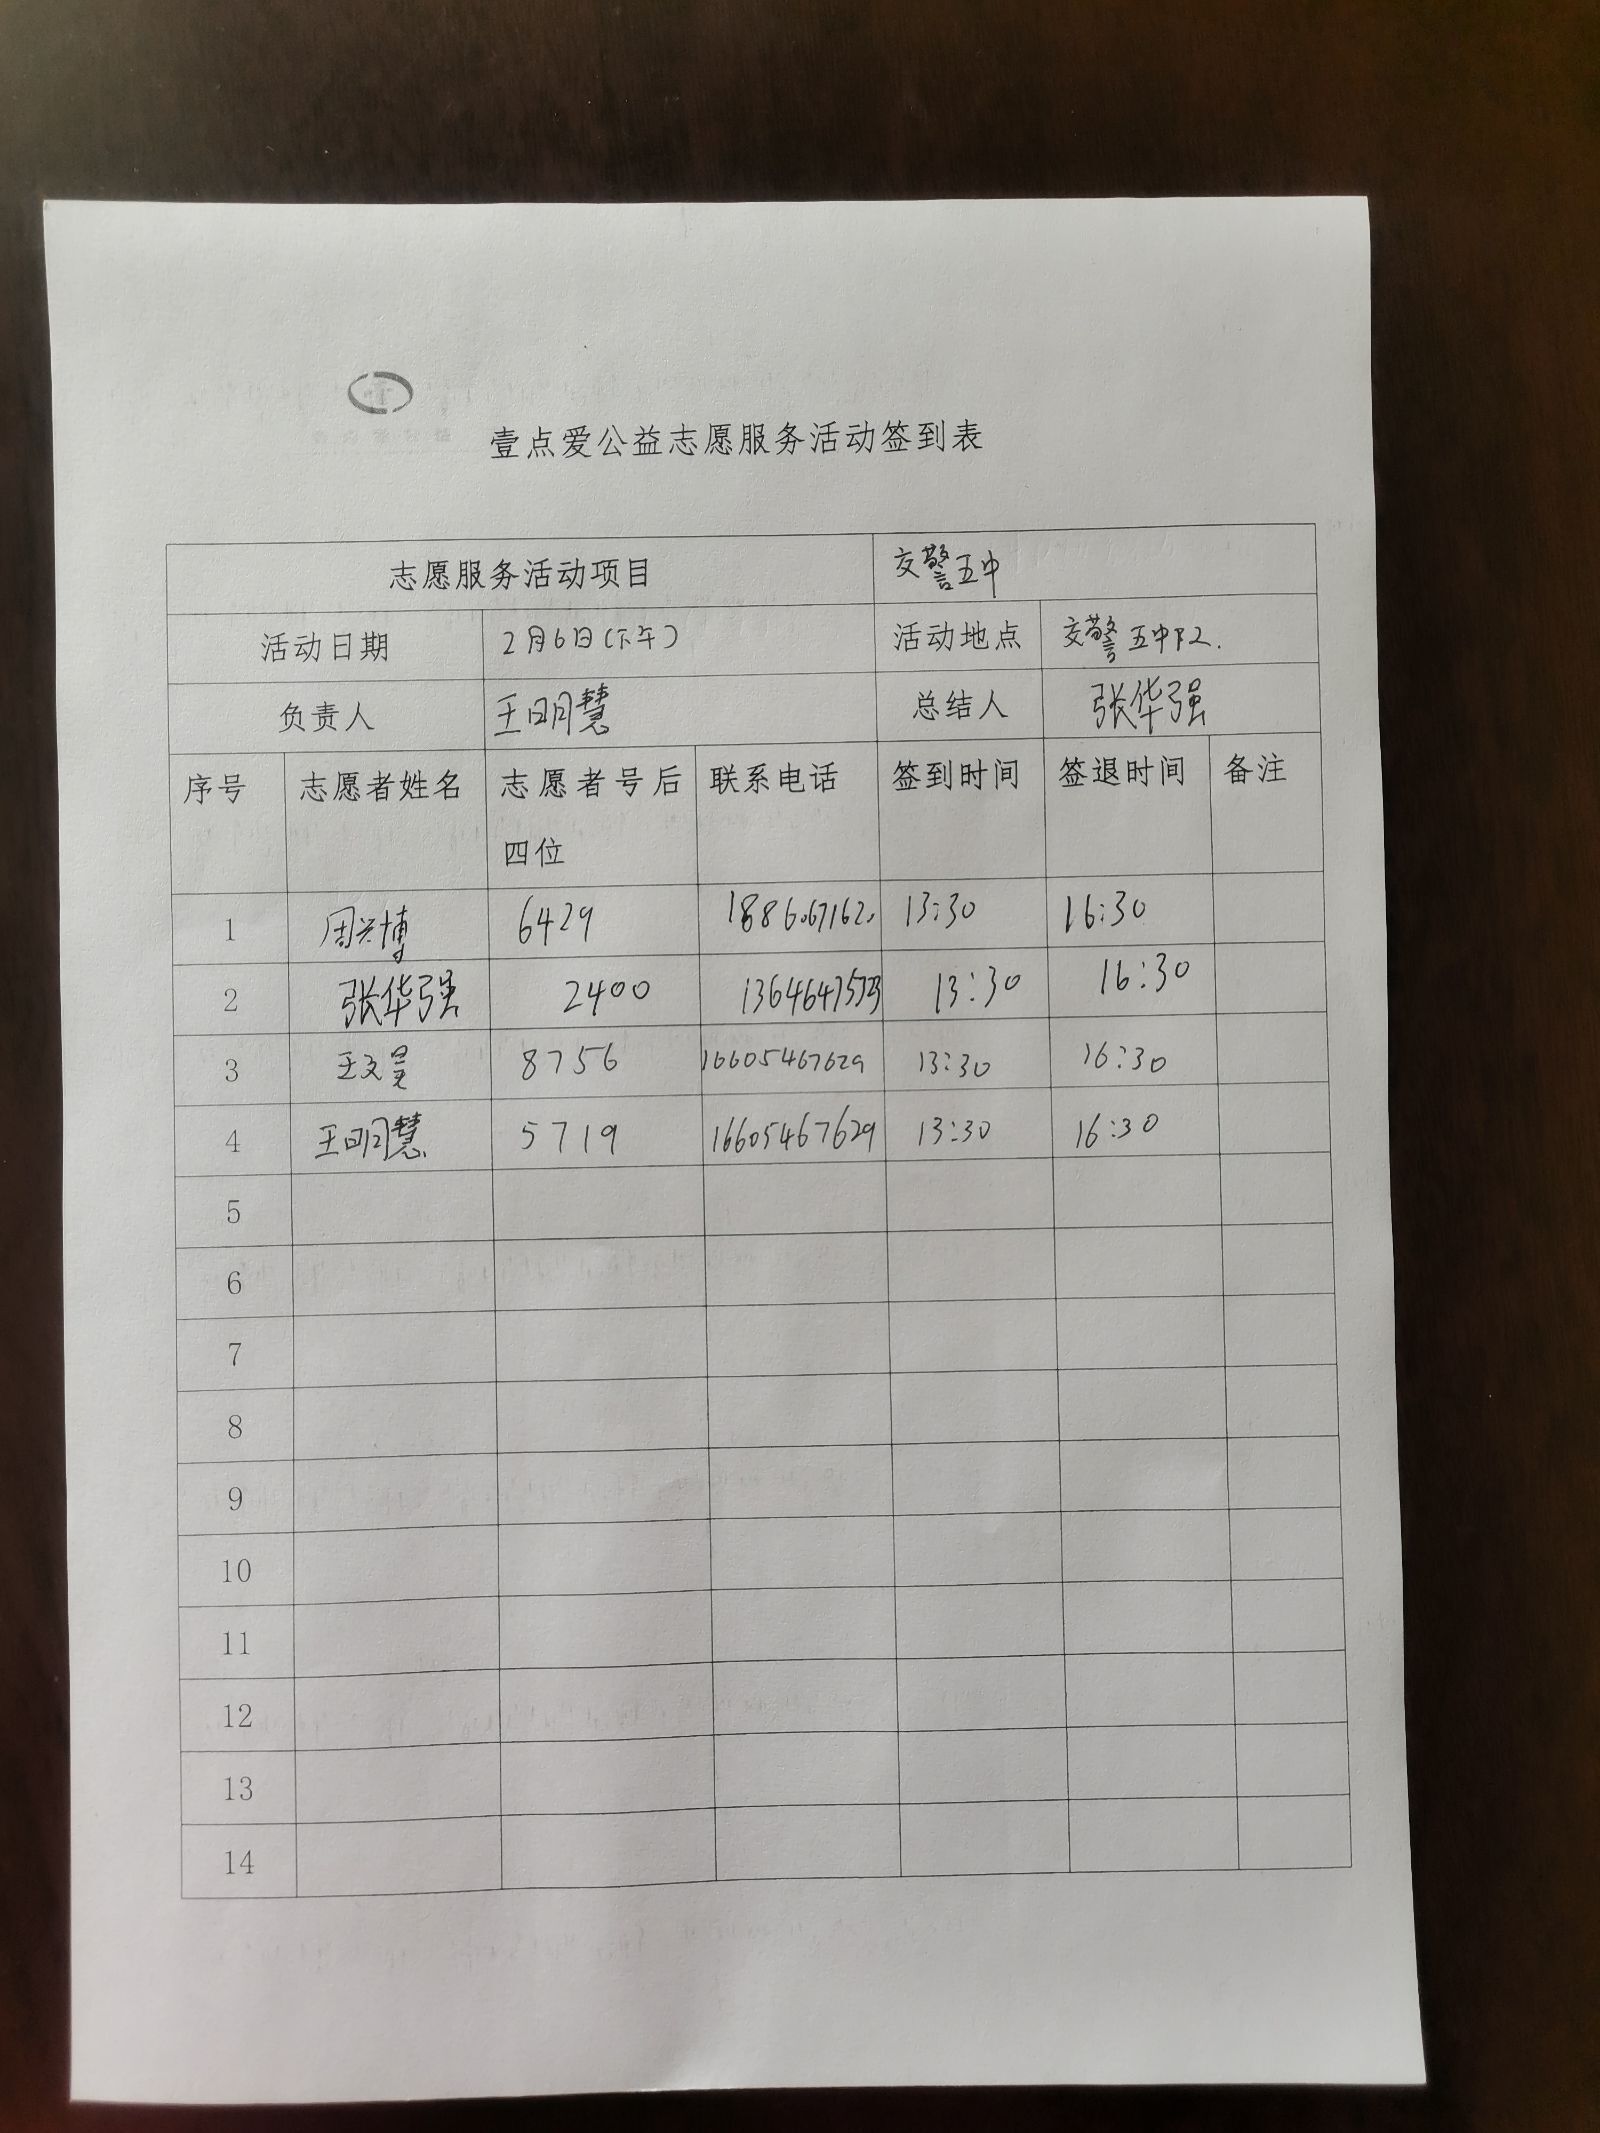 壹点爱公益志愿服务活动签到表
志愿服务活动项目 交警五中
活动日期 2月6日(下午) 活动地点 交警五中队.
负责人 王明慧 总结人 张华强
序号 志愿者姓名 志愿者号后 联系电话 签到时间 签退时间 备注
四位
1 周兴博 6429 13:30 16:30
2 张华强 2400 13:30 16:30
3 王文昊 8756 16605467629 13:30 16:30
4 王明慧 5719 16605467629 13:30 16:30
5
6
7
8
9
10
11
12
13
14